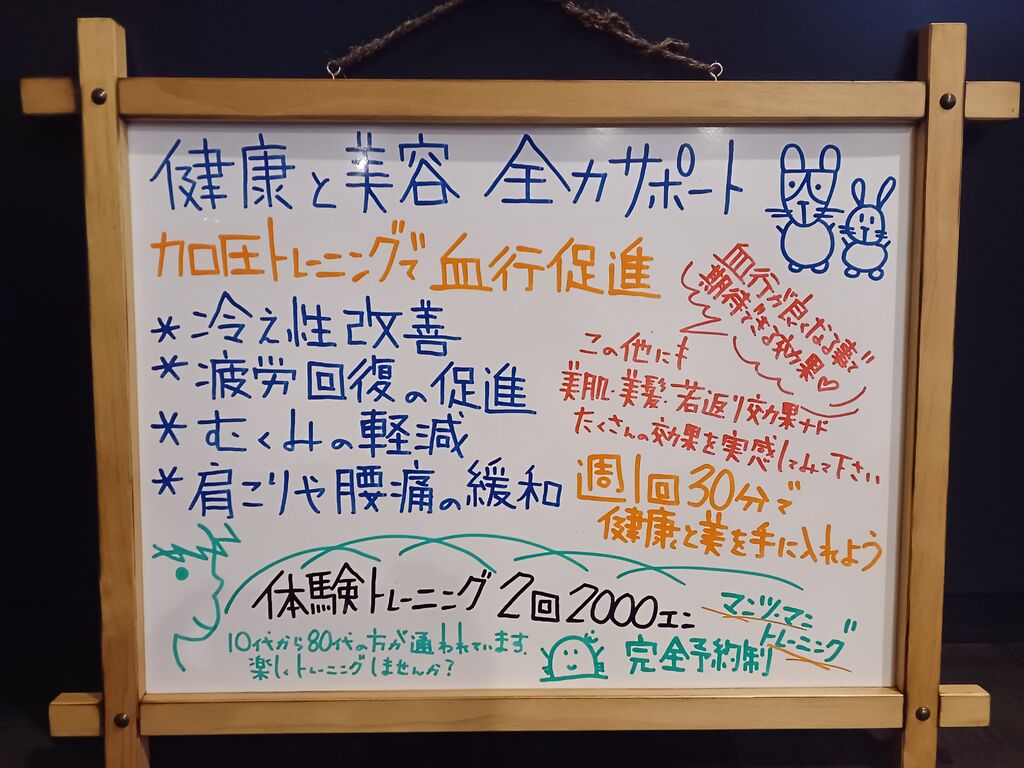 健康と美容 全力サポート
加圧トレーニングで血行促進
血行が良くなる事で
期待できる効果♡
*冷え性改善
*疲労回復の促進
*むくみの軽減
*肩こりや腰痛の緩和
この他にも
美肌・美髪・若返り効果ナド
たくさんの効果を実感してみて下さい
週1回30分で
健康と美を手に入れよう
体験トレーニング 2回2000エン
マンツーマン
トレーニング
10代から80代の方が通われています。
楽しくトレーニングしませんか?
完全予約制